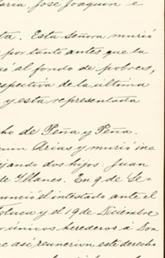 María José Joaquín e
ta. Esta Señora murió
por tanto antes que la
al fondo de pobres,
respectiva de la última
y esta representada
de Peña y Peña.
Arias y murió
dejando dos hijos Juan
de Yllanes. En 9 de Se-
nunció el intestado ante el
Febrero y el 19 de Diciembre
unicos herederos a Don
asi reunieron este derecho